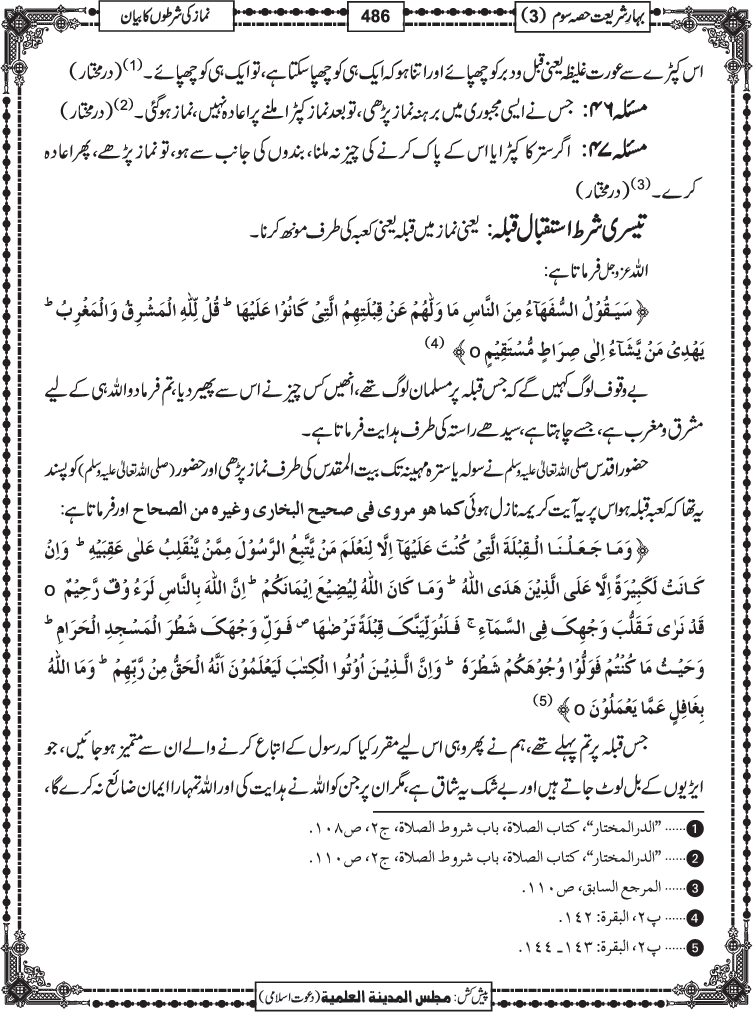 بہارِ شریعت حصہ سوم (3)
486
نماز کی شرطوں کا بیان
اس کپڑے سے عورت غلیظہ یعنی قبل و دبر کو چھپائے اور اتنا ہو کہ ایک ہی کو چھپا سکتا ہے، تو ایک ہی کو چھپائے۔ (1) (درمختار)
مسئلہ ۴۶: جس نے ایسی مجبوری میں برہنہ نماز پڑھی، تو بعد نماز کپڑا ملنے پر اعادہ نہیں، نماز ہوگئی۔ (2) (درمختار)
مسئلہ ۴۷: اگر ستر کا کپڑا یا اس کے پاک کرنے کی چیز نہ ملنا، بندوں کی جانب سے ہو، تو نماز پڑھے، پھر اعادہ
کرے۔ (3) (درمختار)
تیسری شرط استقبال قبلہ: یعنی نماز میں قبلہ یعنی کعبہ کی طرف مونھ کرنا۔
اللہ عزوجل فرماتا ہے:
﴿ سَیَقُوْلُ السُّفَهَآءُ مِنَ النَّاسِ مَا وَلّٰهُمْ عَنْ قِبْلَتِهِمُ الَّتِیْ کَانُوْا عَلَیْهَا ؕ قُلْ لِّلّٰهِ الْمَشْرِقُ وَالْمَغْرِبُ ؕ
یَهْدِیْ مَنْ یَّشَآءُ اِلٰی صِرَاطٍ مُّسْتَقِیْمٍ o ﴾ (4)
بے وقوف لوگ کہیں گے کہ جس قبلہ پر مسلمان لوگ تھے، انھیں کس چیز نے اس سے پھیر دیا، تم فرما دو اللہ ہی کے لیے
مشرق و مغرب ہے، جسے چاہتا ہے، سیدھے راستہ کی طرف ہدایت فرماتا ہے۔
حضور اقدس صلی اللہ تعالیٰ علیہ وسلم نے سولہ یا سترہ مہینہ تک بیت المقدس کی طرف نماز پڑھی اور حضور (صلی اللہ تعالیٰ علیہ وسلم) کو پسند
یہ تھا کہ کعبہ قبلہ ہو اس پر یہ آیت کریمہ نازل ہوئی کما هو مروی فی صحیح البخاری وغیرہ من الصحاح اور فرماتا ہے:
﴿ وَمَا جَعَلْنَا الْقِبْلَةَ الَّتِیْ کُنْتَ عَلَیْهَآ اِلَّا لِنَعْلَمَ مَنْ یَّتَّبِعُ الرَّسُوْلَ مِمَّنْ یَّنْقَلِبُ عَلٰی عَقِبَیْهِ ؕ وَاِنْ
کَانَتْ لَکَبِیْرَةً اِلَّا عَلَی الَّذِیْنَ هَدَی اللّٰهُ ؕ وَمَا کَانَ اللّٰهُ لِیُضِیْعَ اِیْمَانَکُمْ ؕ اِنَّ اللّٰهَ بِالنَّاسِ لَرَءُوْفٌ رَّحِیْمٌ o
قَدْ نَرٰی تَقَلُّبَ وَجْهِکَ فِی السَّمَآءِ ۚ فَلَنُوَلِّیَنَّکَ قِبْلَةً تَرْضٰهَا ۪ فَوَلِّ وَجْهَکَ شَطْرَ الْمَسْجِدِ الْحَرَامِ ؕ
وَحَیْثُ مَا کُنْتُمْ فَوَلُّوْا وُجُوْهَکُمْ شَطْرَهٗ ؕ وَاِنَّ الَّذِیْنَ اُوْتُوا الْکِتٰبَ لَیَعْلَمُوْنَ اَنَّهُ الْحَقُّ مِنْ رَّبِّهِمْ ؕ وَمَا اللّٰهُ
بِغَافِلٍ عَمَّا یَعْمَلُوْنَ o ﴾ (5)
جس قبلہ پر تم پہلے تھے، ہم نے پھر وہی اس لیے مقرر کیا کہ رسول کے اتباع کرنے والے ان سے متمیز ہو جائیں، جو
ایڑیوں کے بل لوٹ جاتے ہیں اور بے شک یہ شاق ہے، مگر ان پر جن کو اللہ نے ہدایت کی اور اللہ تمہارا ایمان ضائع نہ کرے گا،
1 ...... ”الدرالمختار“، کتاب الصلاة، باب شروط الصلاة، ج۲، ص۱۰۸.
2 ...... ”الدرالمختار“، کتاب الصلاة، باب شروط الصلاة، ج۲، ص۱۱۰.
3 ...... المرجع السابق، ص۱۱۰.
4 ...... پ۲، البقرة: ۱۴۲.
5 ...... پ۲، البقرة: ۱۴۳ـ ۱۴۴.
پیش کش: مجلس المدینة العلمیة (دعوت اسلامی)